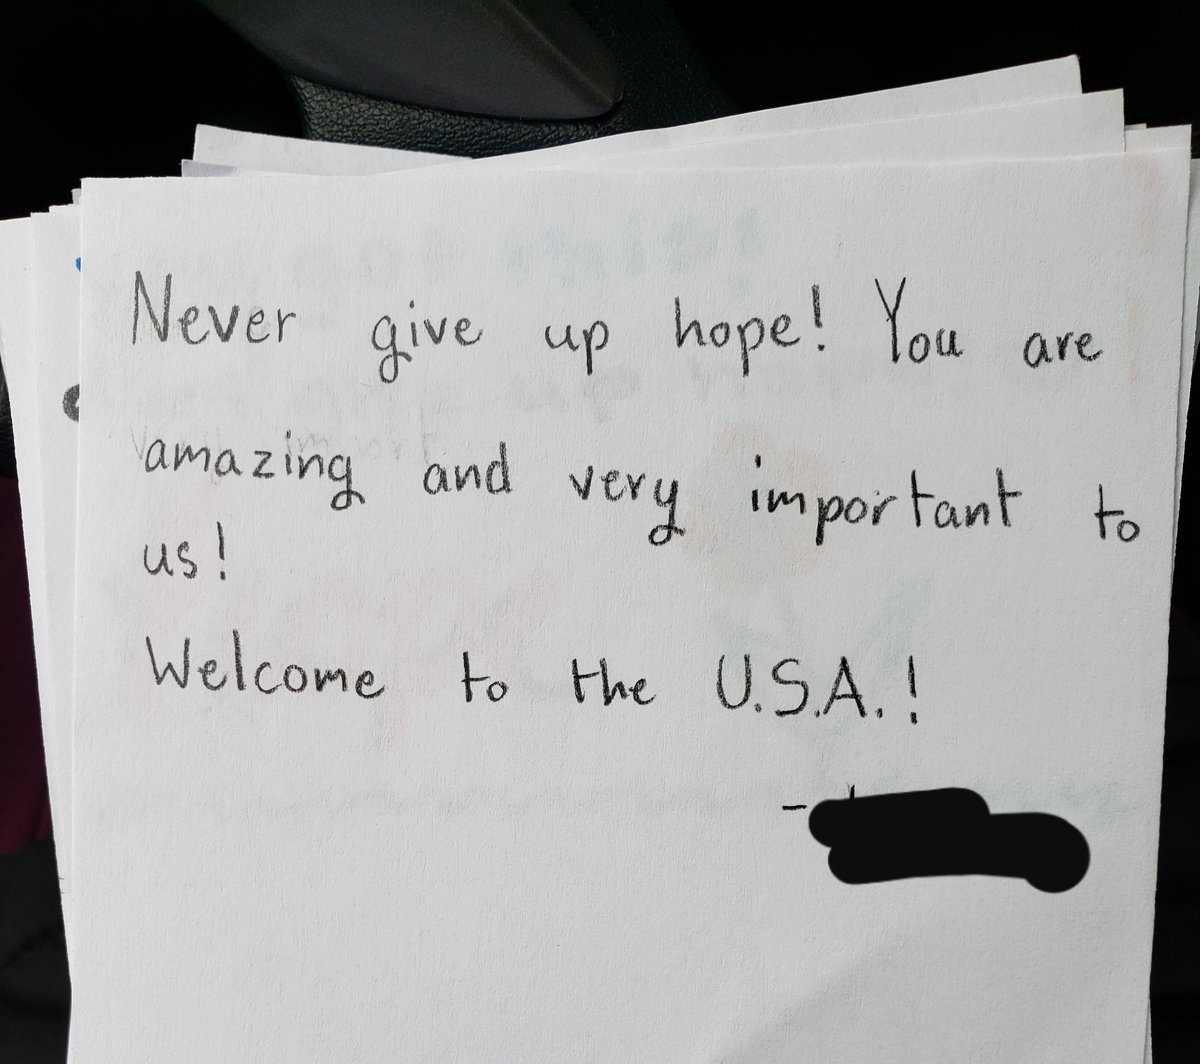 Never give up hope! You are
amazing and very important to
us!
Welcome to the U.S.A.!
-